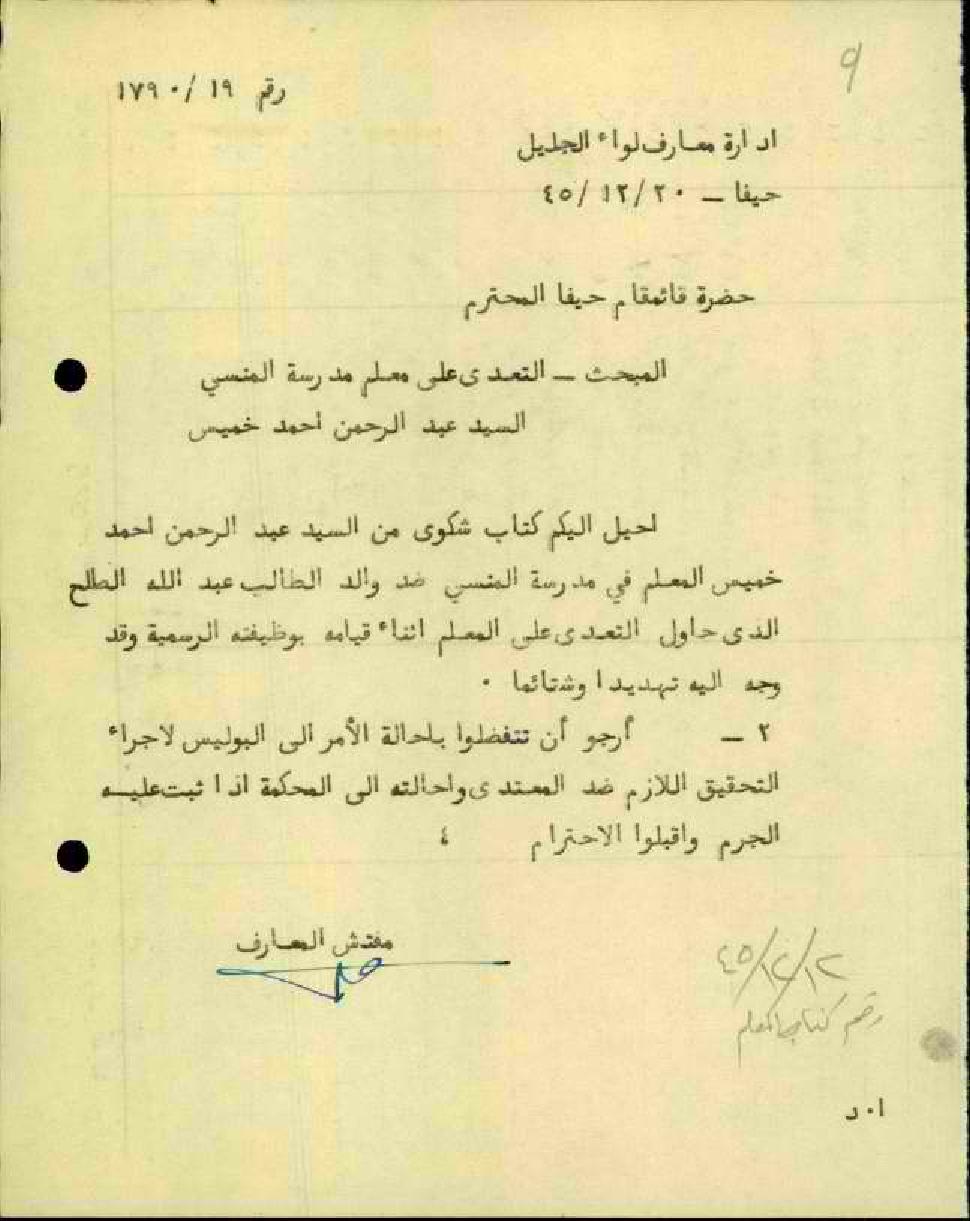 9
رقم ١٩ /١٧٩٠
ادارة معارف لواء الجليل
حيفا – ٢٠ /١٢ /٤٥
حضرة قائمقام حيفا المحترم
المبحث – التعدى على معلم مدرسة المنسي
السيد عبد الرحمن احمد خميس
احيل اليكم كتاب شكوى من السيد عبد الرحمن احمد
خميس المعلم في مدرسة المنسي ضد والد الطالب عبد الله الطلح
الذى حاول التعدى على المعلم اثناء قيامه بوظيفته الرسمية وقد
وجه اليه تهديدا وشتائما ٠
٢ – أرجو أن تتفضلوا باحالة الأمر الى البوليس لاجراء
التحقيق اللازم ضد المعتدى واحالته الى المحكمة اذا ثبت عليـــه
الجرم واقبلوا الاحترام ٤
مفتش المعارف
٤٥/١٢/١٢
رقم كتاب المعلم
ا٠د